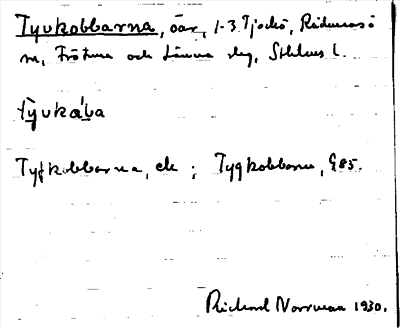 Tyvkobbarna, öar, 1-3 Tjockö, Rådmansö
m, Frötuna och Länna skg, Sthlms l.
tỳvkaba
Tyfkobbarna, ek ; Tygkobbarne, G85.
Richard Norrman 1930.